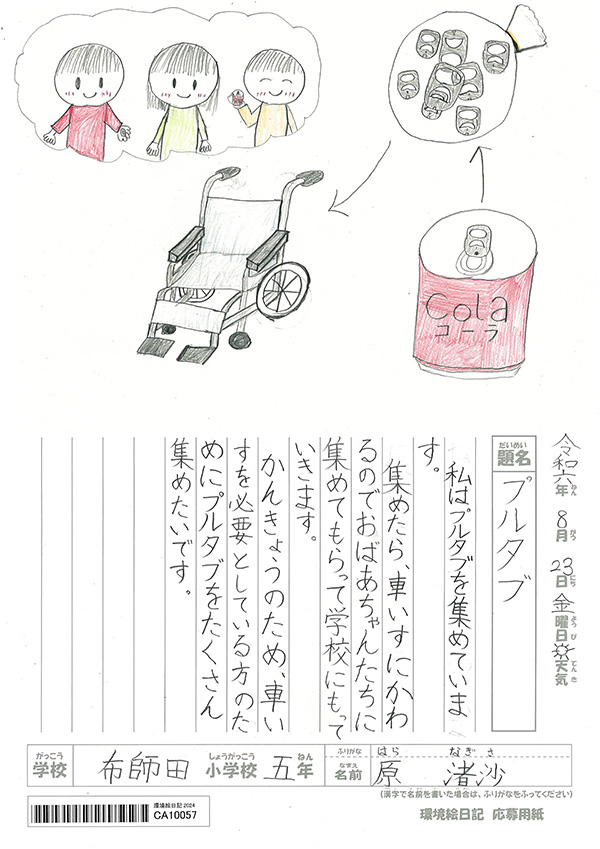 Cola
コーラ
令和六年 8月 23日 金曜日 天気
ねん がつ にち ようび てんき
だいめい
題名 プルタブ
私はプルタブを集めていま
す。
集めたら、車いすにかわ
るのでおばあちゃんたちに
集めてもらって学校にもって
いきます。
かんきょうのため、車い
すを必要としている方のた
めにプルタブをたくさん
集めたいです。
がっこう しょうがっこう ねん
学校 布師田 小学校 五年
ふりがな はら なぎさ
なまえ
名前 原 渚沙
(漢字で名前を書いた場合は、ふりがなをふってください)
環境絵日記 2024
CA10057
環境絵日記 応募用紙